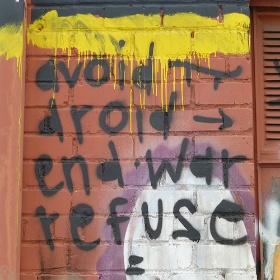 avoid →
droid →
end war
refuse